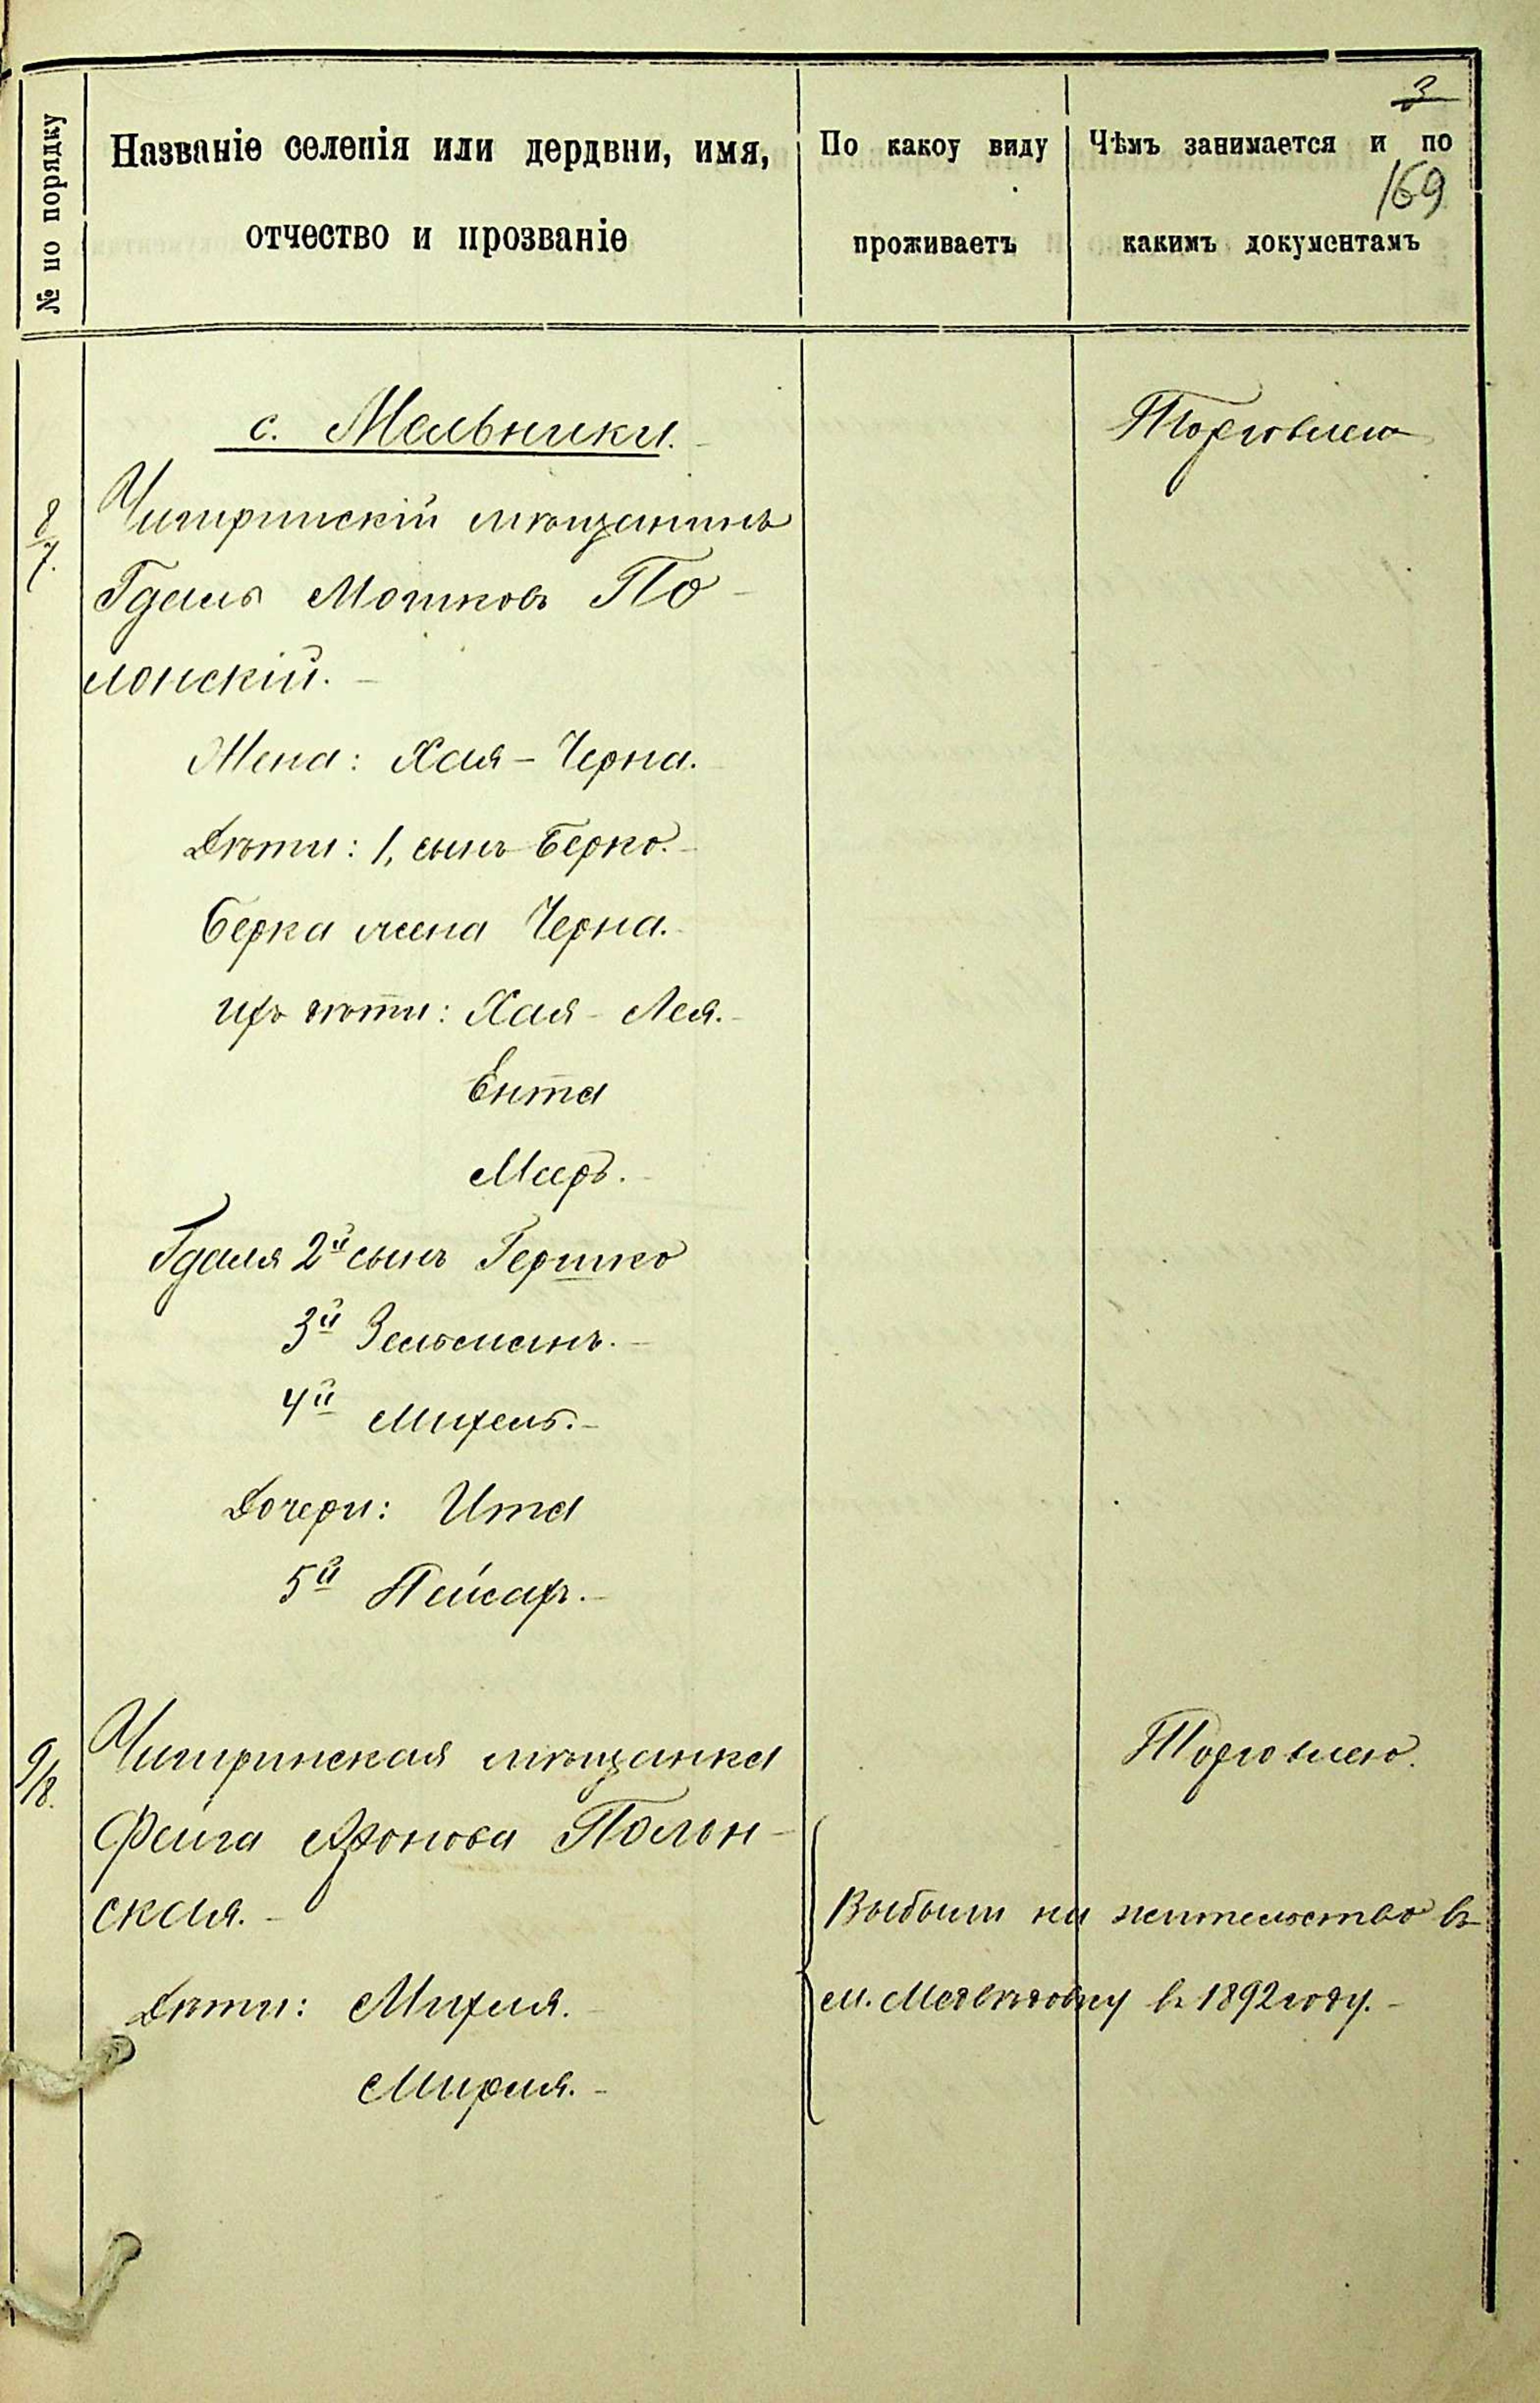 3
169
№ по порядку
Названіе селенія или дердвни, имя,
отчество и прозваніе
По какоу виду
проживаетъ
Чѣмъ занимается и по
какимъ документамъ
с. Мельники.
Торговлею
8/7.
Чигиринскій мѣщанинъ
Гдаль Мошковъ По-
лонскій.
Жена: Хая-Черна.
Дѣти: 1, сынъ Берко.
Берка жена Черна.
ихъ дѣти: Хая-Лея.
Ента
Меръ.
Гдаля 2й сынъ Гершко
3й Зельманъ.
4й Михель.
Дочери: Ита
5й Пейсахъ.
9/8.
Чигиринская мѣщанка
Торговлею.
Фейга Аронова Полон-
ская.
Выбыли на жительство въ
Дѣти: Михля.
м. Медвѣдовку въ 1892 году.
Мирля.